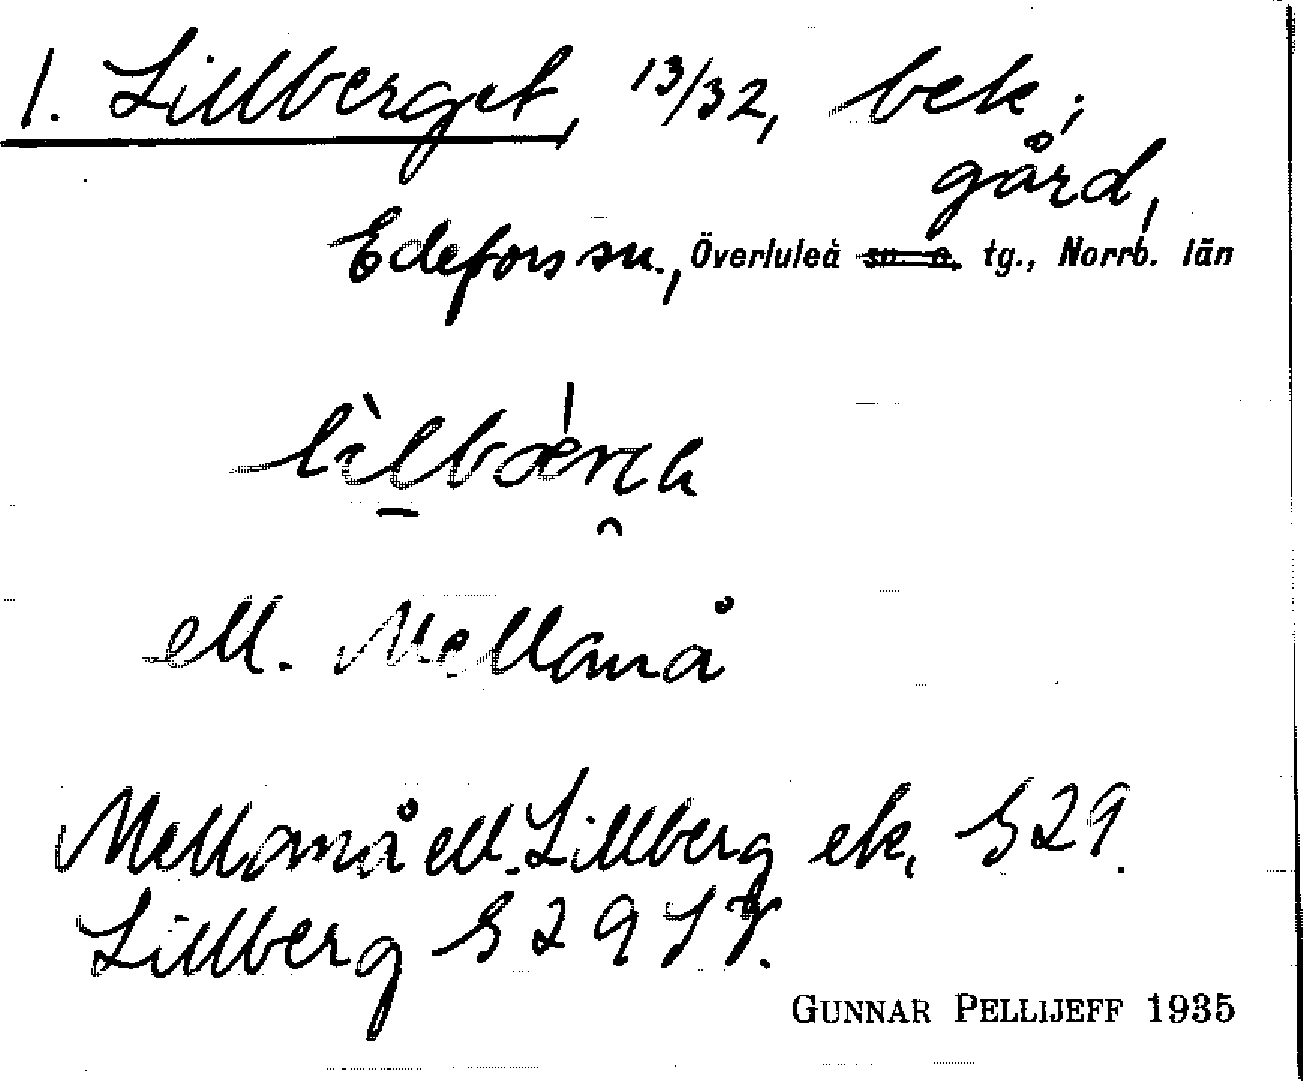 1. Lillberget, 13/32, bek.;
gård,
Edefors sn., Överluleå sn o. tg., Norrb. län
ell. Mellanå
Mellanå ell. Lillberg ek. S 29.
Lillberg S 29
GUNNAR PELLIJEFF 1935